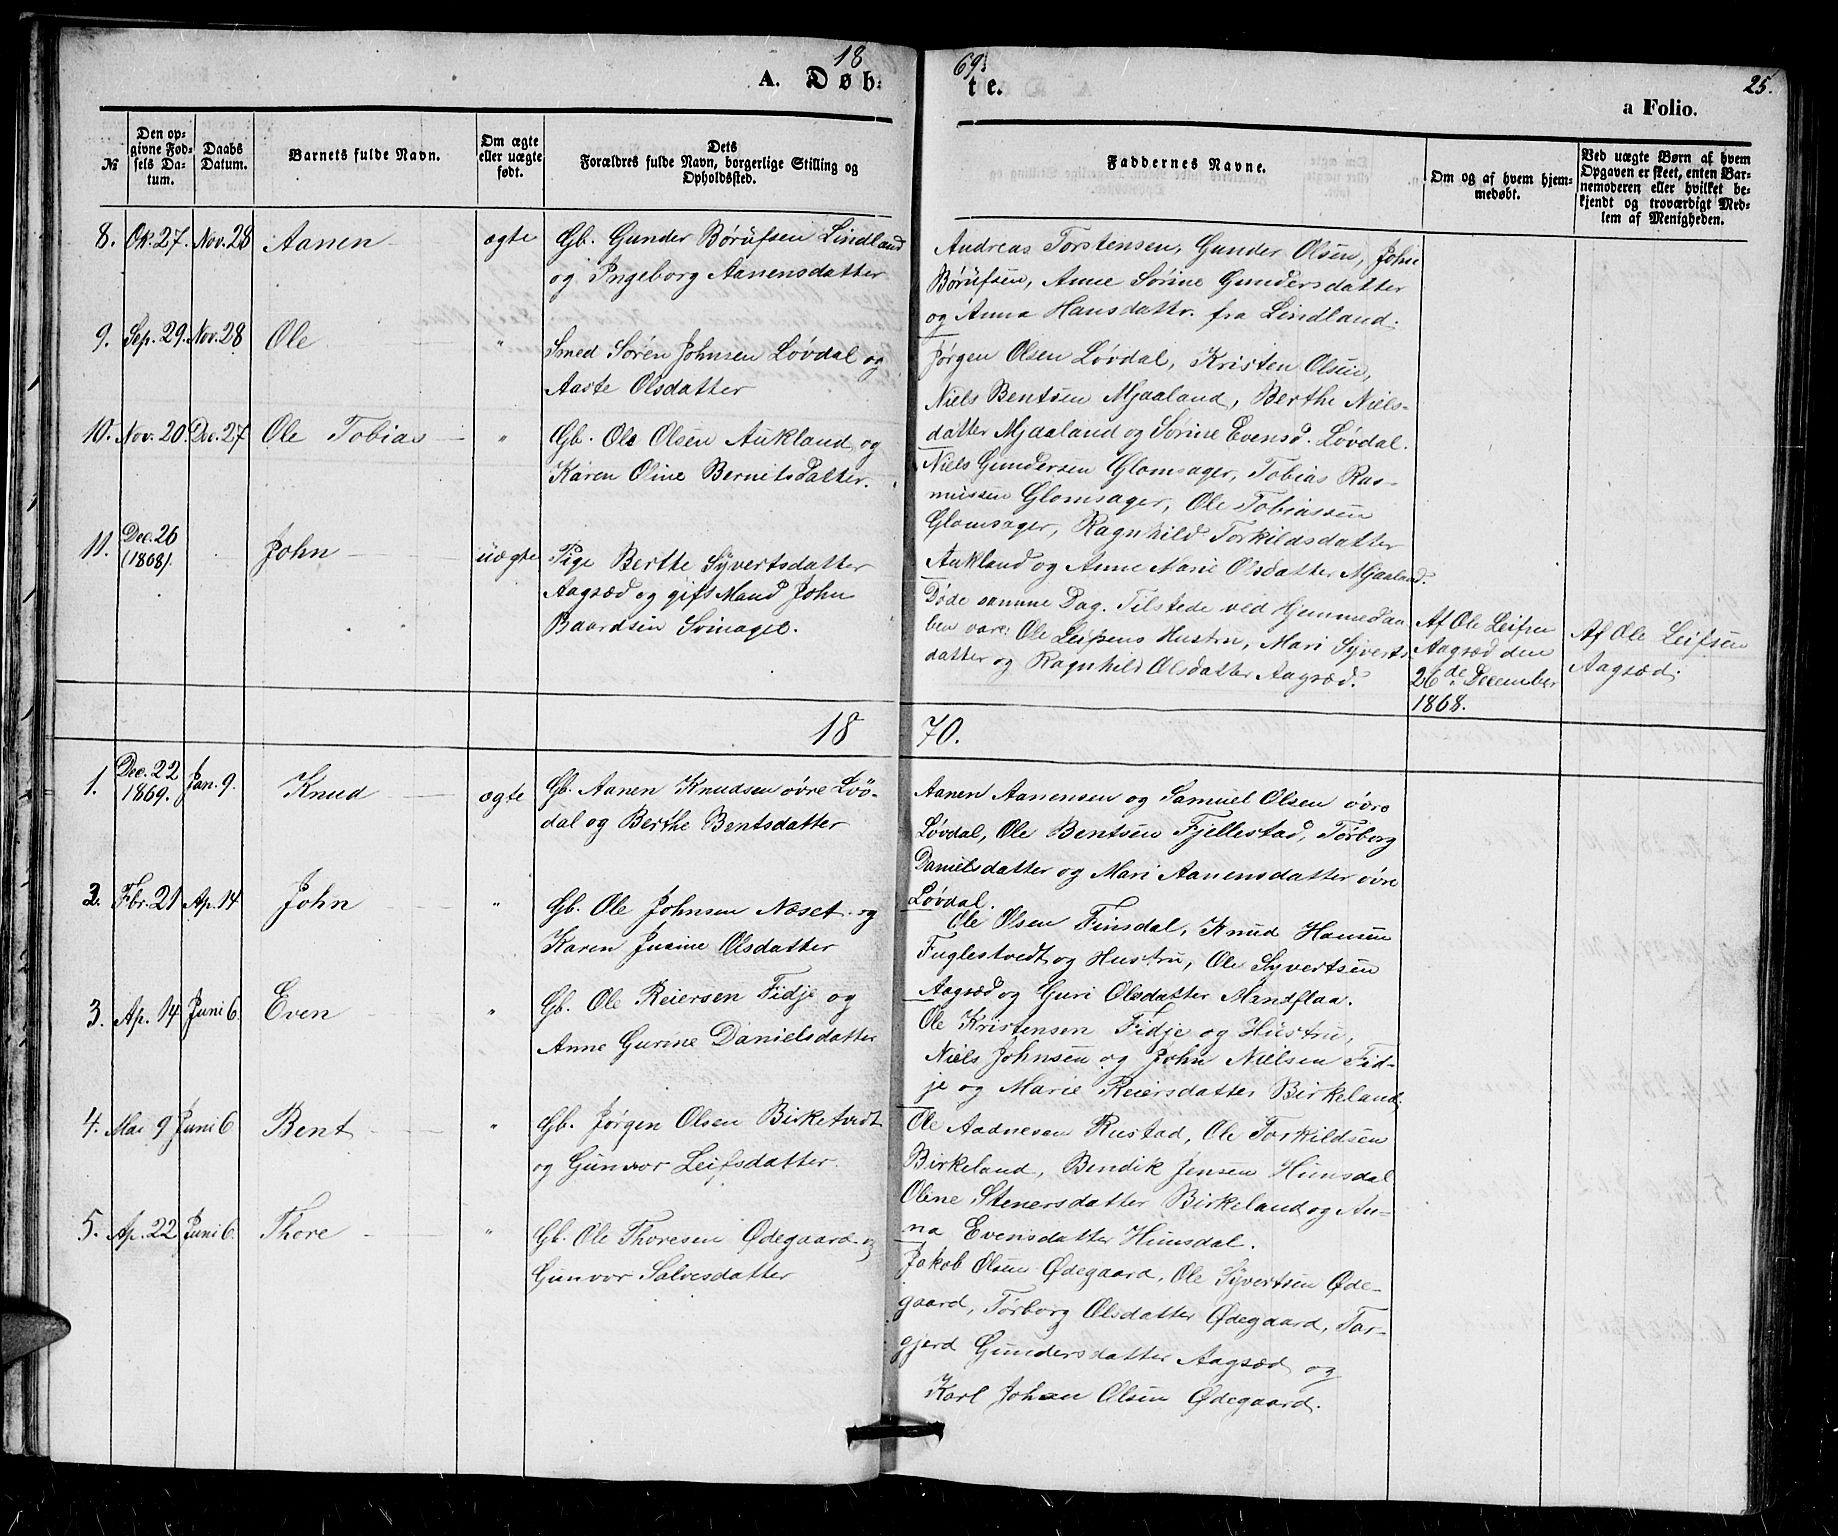 18 69.
25.
A. Døbte.
a Folio.
№
Den opgivne Fødsels Datum.
Daabs Datum.
Barnets fulde Navn.
Om ægte eller uægte født.
Dets Forældres fulde Navn, borgerlige Stilling og Opholdssted.
Faddernes Navne.
Om og af hvem hjemmedøbt.
Ved uægte Børn af hvem Opgaven er skeet, enten Barnemoderen eller hvilket bekjendt og troværdigt Medlem af Menigheden.
8. Ok. 27. Nov. 28 Aanen ægte
Gb. Gunder Börüfsen Lindland
og Ingeborg Aanensdatter
Andreas Torstensen, Gunder Olsen, John
Börüfsen, Anne Sörine Gundersdatter
og Anna Hansdattr. fra Lindland.
9. Sep. 29. Nov. 28 Ole "
Smed Sören Johnsen Lövdal og
Aaste Olsdatter
Jørgen Olsen Lövdal, Kristen Olsen,
Niels Bentsen Mjaaland, Berthe Niels-
datter Mjaaland og Sörine Evensd. Lövdal.
10. Nov. 20. Dec. 27 Ole Tobias "
Gb. Ole Olsen Aukland og
Karen Oline Berntsdatter.
Niels Gundersen Glomsager, Tobias Ras-
mussen Glomsager, Ole Tobiassen
Glomsager, Ragnhild Torkildsdatter
Aukland og Anne Marie Olsdatter Mjaaland.
11. Dec. 26 (1868). John uægte
Pige Berthe Syvertsdatter
Aagsæd og gift Mand John
Baardsen Svinaget.
Døde samme Dag. Tilstede ved Hjemmedaa-
ben vare: Ole Leifsens Hustru, Mari Syverts-
datter og Ragnhild Olsdatter Aagsæd.
Af Ole Leifsen
Aagsæd den
26de December
1868.
Af Ole Leifsen
Aagsæd.
18 70.
1. Dec. 22 1869. Jan. 9. Knud ægte
Gb. Aanen Knudsen øvre Löv-
dal og Berthe Bentsdatter
Aanen Aanensen og Samuel Olsen øvre
Lövdal, Ole Bentsen Fjellestad, Törborg
Danielsdatter og Mari Aanensdatter øvre
Lövdal.
2. Fbr. 21 Ap. 14 John "
Gb. Ole Johnsen Næset og
Karen Jusine Olsdatter
Ole Olsen Finsdal, Knud Hansen
Fuglestvedt og Hustru, Ole Syvertsen
Aagsæd og Guri Olsdatter Mandflaa.
3. Ap. 14 Juni 6. Even "
Gb. Ole Reiersen Fidje og
Anne Gurine Danielsdatter
Ole Kristensen Fidje og Hustru,
Niels Johnsen og John Nielsen Fid-
je og Marie Reiersdatter Birkeland.
4. Mai 9 Juni 6 Bent "
Gb. Jørgen Olsen Birketvedt
og Gunvor Leifsdatter.
Ole Aadnesen Rustad, Ole Torkildsen
Birkeland, Bendik Jensen Hunsdal
Oline Stenersdatter Birkeland og An-
na Evensdatter Hunsdal.
5. Ap. 22 Juni 6. Thore "
Gb. Ole Thoresen Ødegaard og
Gunvor Salvesdatter
Jakob Olsen Ødegaard, Ole Syvertsen Øde-
gaard, Törborg Olsdatter Ødegaard, Tar-
gjerd Gundersdatter Aagsæd og
Karl Johan Olsen Ødegaard.